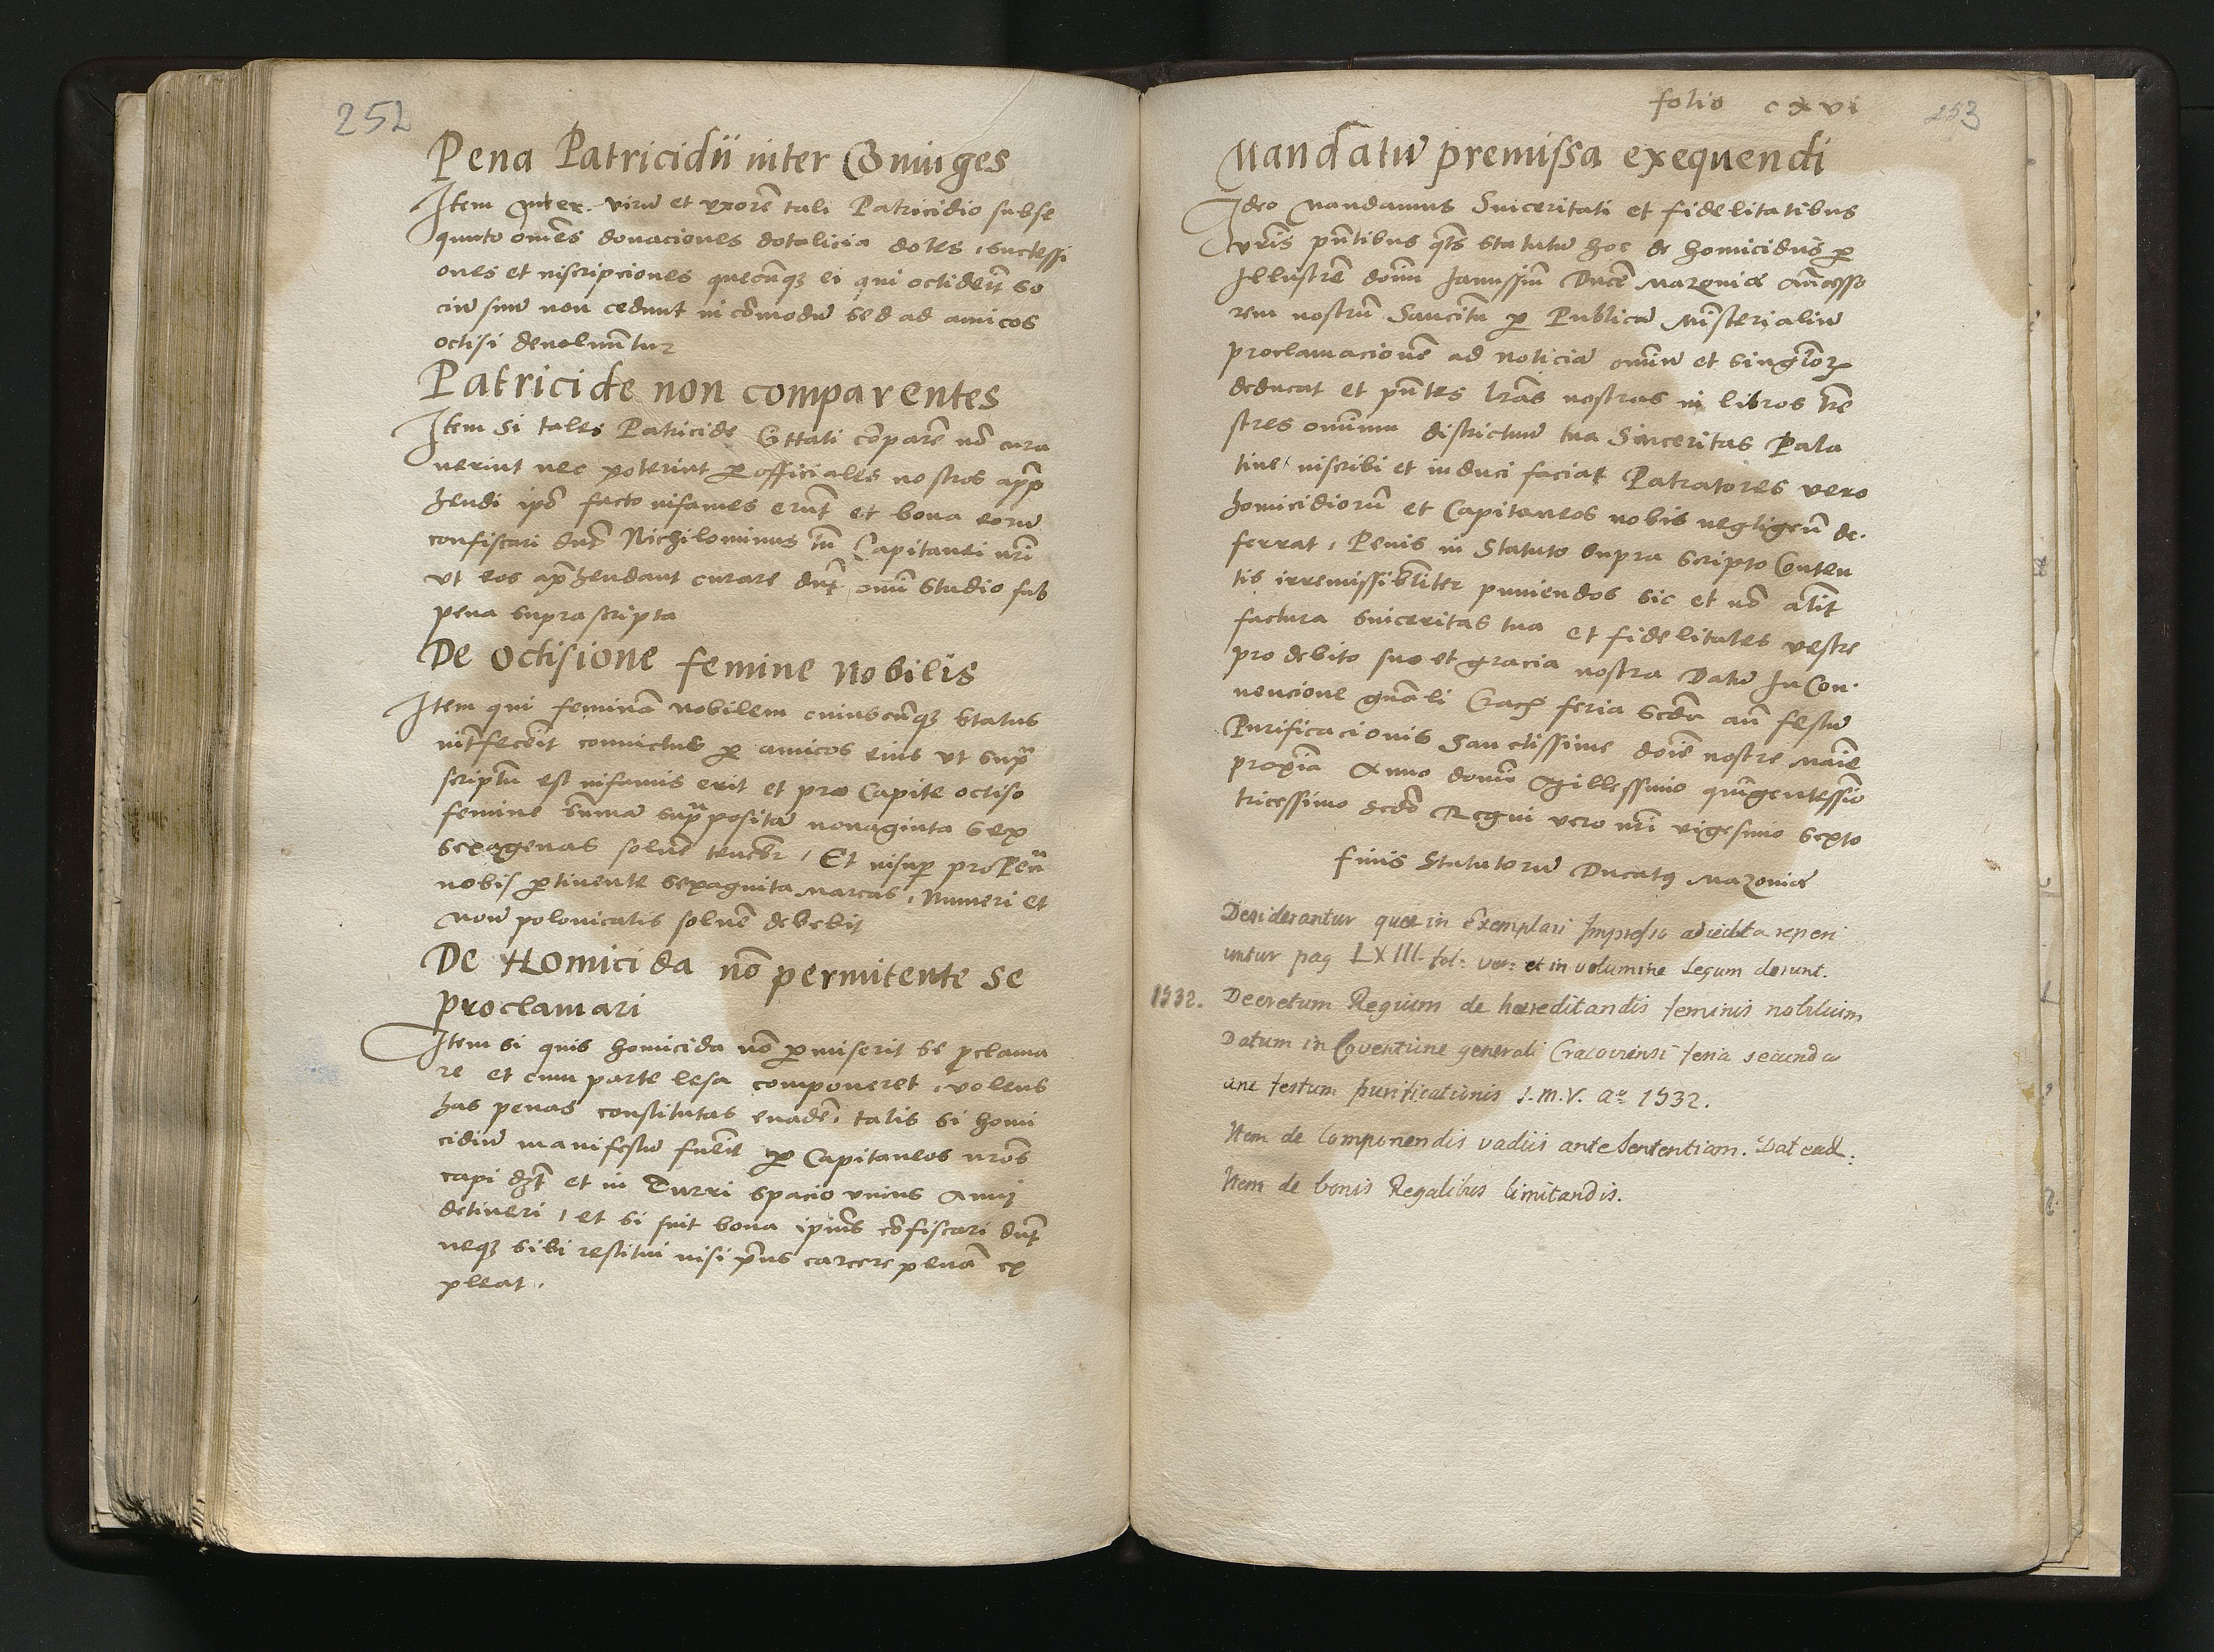 252
Pena Patricidii inter Coniuges
Item inter virũ et vxorẽ tali Patricidio subse
quuto om̃es donaciones dotalicia dotes, successi
ones et inscripciones quecũq; ei qui occiderit so
ciũ suũ non cedunt in cõmodũ sed ad amicos
occisi deuoluũtur
Patricide non comparentes
Item Si tales Patricide Cittati cõparẽ nõ cura
uerint nec poterint p officiales nostros app̃
hendi ip̃o facto infames erũt et bona eorũ
confiscari dñt Nichilominus tñ Capitanei nr̃i
vt eos app̃hendant curare dñt om̃i studio sub
pena suprascripta
De occisione femine nobilis
Item qui feminã nobilem cuiuscũq; status
int̃fecẽit conuictus p amicos eius vt sup̃
scriptũ est infamis erit et pro Capite occiso
femine sũmã sup̃positã nonaginta sex
sexagenas soluẽ tenebr̃, Et insup pro Peña
nobis ptinente sexaginta marcas, Numeri et
Monẽ polonicalis soluẽ debebit
De Homicida nõ permitente se
proclamari
Item si quis homicida nõ pmiserit se pclama
re et cum parte lesa componeret, volens
has penas constitutas euadẽ, talis si homi
cidiũ manifestũ fuẽit p Capitaneos nr̃os
capi dẽt et in Turri spacio vnius Anni
detineri, et si sint bona ip̃ius cõfiscari dñt
neq; sibi restitui nisi p̃us carcere penã ex
pleat.
folio cxvi
253
Mandatũ premissa exequendi
Ideo Mandamus Sinceritati et fidelitatibus
vr̃is pñtibus q̃ts statutũ hoc de homicidiis p
Illustrẽ dom̃ Janussiũ Ducẽ Mazouie Añcesso
rem nostrũ Sancitũ p Publicã Ministerialiũ
proclamacionẽ ad noticiã om̃iũ et singl̃or
deducat et pñtes lr̃as nostras in libros tr̃e
stres omnium districtuũ tua Sinceritas Pala
tine, inscribi et induci faciat Patratores vero
homicidiorũ et Capitaneos nobis negligeñ de.
ferrat, Penis in Statuto supra scripto Conten
tis irremissibl̃iter puniendos sic et nõ al̃it
factura sinceritas tua et fidelitates vestre
pro debito suo et gracia nostra Datũ In Con.
uencione gnãli Crac̃ feria Scd̃a añ festũ
Purificacionis Sanctissime doĩe nostre Mañe
proxiã Anno domĩ Millessimo quĩgentessiõ
tricessimo Scdõ Regni vero nr̃i vigesimo sexto
finis Statutorũ Ducatus Mazouie
Desiderantur quæ in Exemplari Impresso adiecta reperi
untur pag LXIII. fol: ver: et in volumine Legum desunt.
1532. Decretum Regium de hæreditandis feminis nobilium
Datum in Coventione generali Cracoviensi feria secunda
ane festum purificationis S. M. V. Aº 1532.
Item de componendis vadiis ante Sententiam. Dat ead:
Item de bonis Regalibus limitandis.